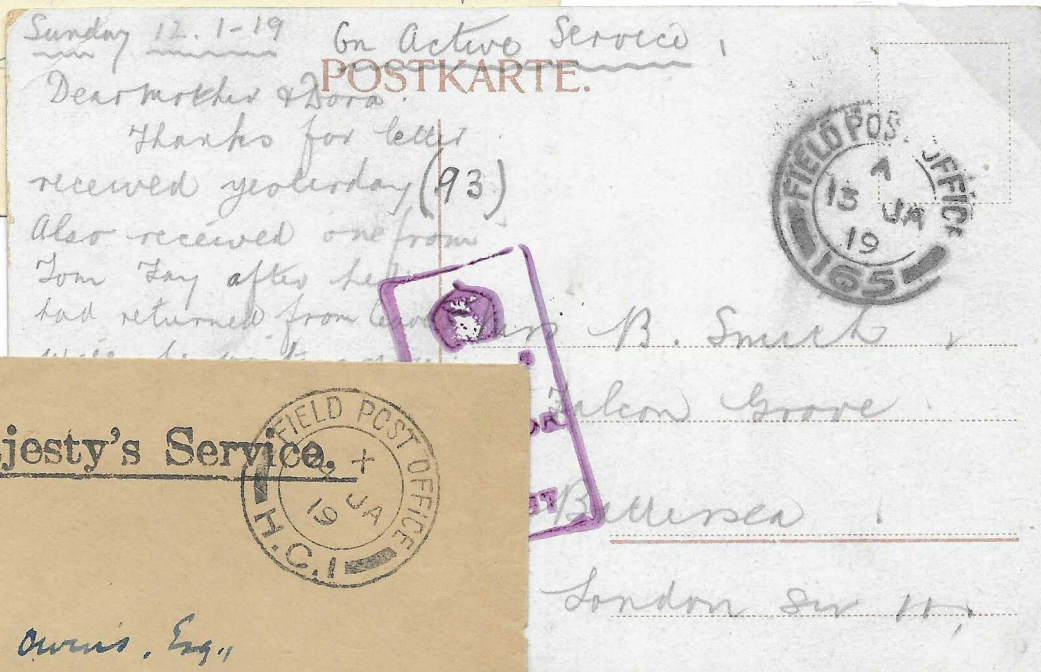 Sunday 12.1-19 On Active Service,
POSTKARTE.
Dear Mother & Dora.
Thanks for letter
received yesterday (93)
Also received one from
Tom Fay after he
had returned from
FIELD POST OFFICE
A
13 JA
19
165
B. Smith
Falcon Grove.
Battersea
London SW 11,
jesty's Service.
FIELD POST OFFICE
X
JA
19
H.C.1
Owens, Esq,,